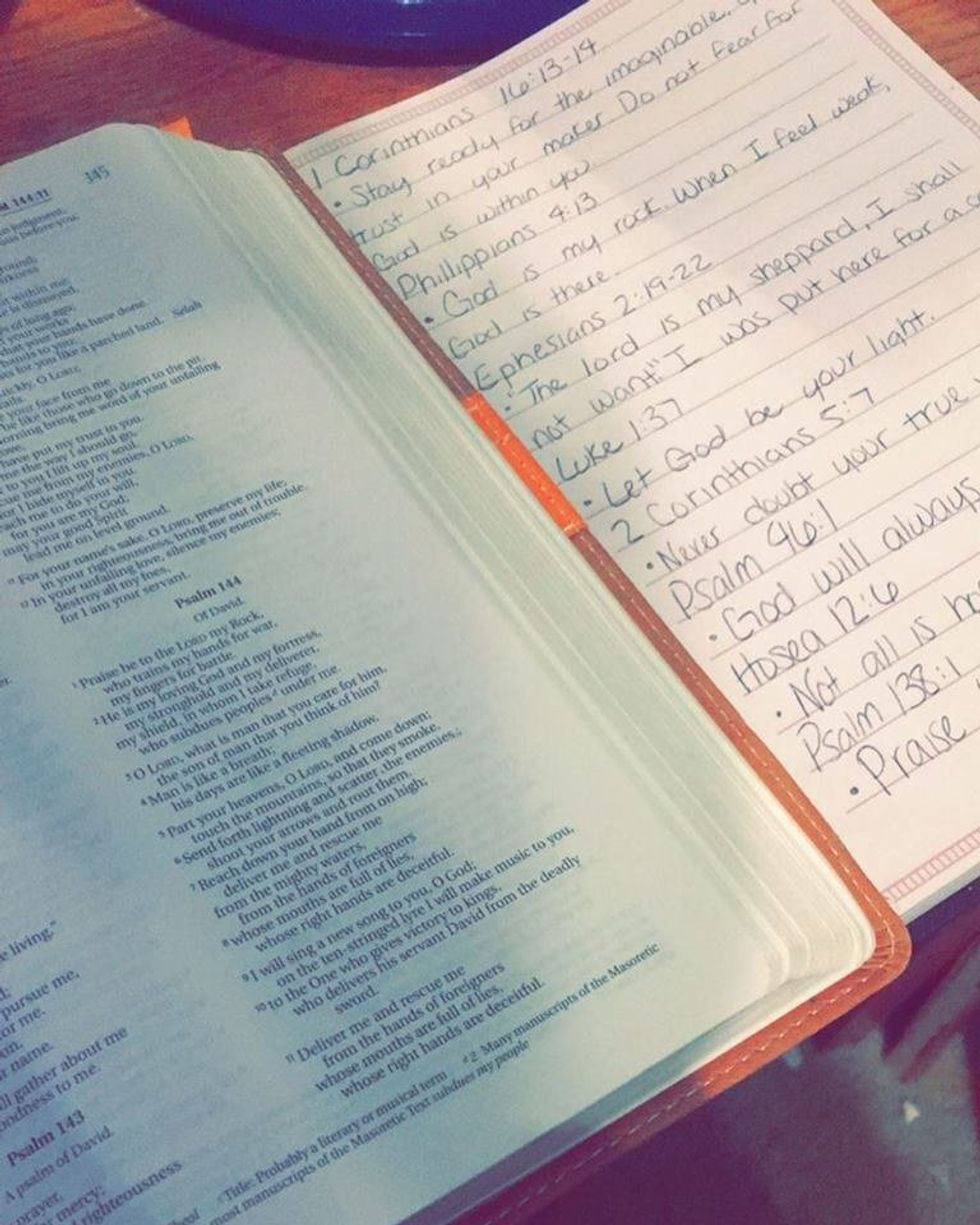 345
144:11
judgment,
before you.
ground;
darkness
within me;
is dismayed.
of long ago;
your works
what your hands have done.
hands to you;
for you like a parched land. Selah
quickly, O LORD;
fails.
your face from me
be like those who go down to the pit.
morning bring me word of your unfailing
love,
have put my trust in you.
me the way I should go,
to you I lift up my soul.
me from my enemies, O LORD,
for I hide myself in you.
teach me to do your will,
for you are my God;
may your good Spirit
lead me on level ground.
11 For your name's sake, O LORD, preserve my life;
in your righteousness, bring me out of trouble.
12 In your unfailing love, silence my enemies;
destroy all my foes,
for I am your servant.
Psalm 144
Of David.
1 Praise be to the LORD my Rock,
who trains my hands for war,
my fingers for battle.
2 He is my loving God and my fortress,
my stronghold and my deliverer,
my shield, in whom I take refuge,
who subdues peoples d under me.
3 O LORD, what is man that you care for him,
the son of man that you think of him?
4 Man is like a breath;
his days are like a fleeting shadow.
5 Part your heavens, O LORD, and come down;
touch the mountains, so that they smoke.
6 Send forth lightning and scatter the enemies;
shoot your arrows and rout them.
7 Reach down your hand from on high;
deliver me and rescue me
from the mighty waters,
from the hands of foreigners
8 whose mouths are full of lies,
whose right hands are deceitful.
9 I will sing a new song to you, O God;
on the ten-stringed lyre I will make music to you,
10 to the One who gives victory to kings,
who delivers his servant David from the deadly
sword.
11 Deliver me and rescue me
from the hands of foreigners
whose mouths are full of lies,
whose right hands are deceitful.
living."
pursue me,
or me.
name.
gather about me
goodness to me.
Psalm 143
A psalm of David.
prayer,
mercy;
righteousness
Title: Probably a literary or musical term d 2 Many manuscripts of the Masoretic
most manuscripts of the Masoretic Text subdues my people
1 Corinthians 16:13-14
• Stay ready for the imaginable.
trust in your maker Do not fear for
God is within you
Phillippians 4:13
• God is my rock. When I feel weak,
God is there.
Ephesians 2:19-22
• "The lord is my sheppard, I shall
not want." I was put here for a
Luke 1:37
• Let God be your light.
2 Corinthians 5:7
• Never doubt your true
Psalm 46:1
• God will always
Hosea 12:6
• Not all is
Psalm 138:1
• Praise